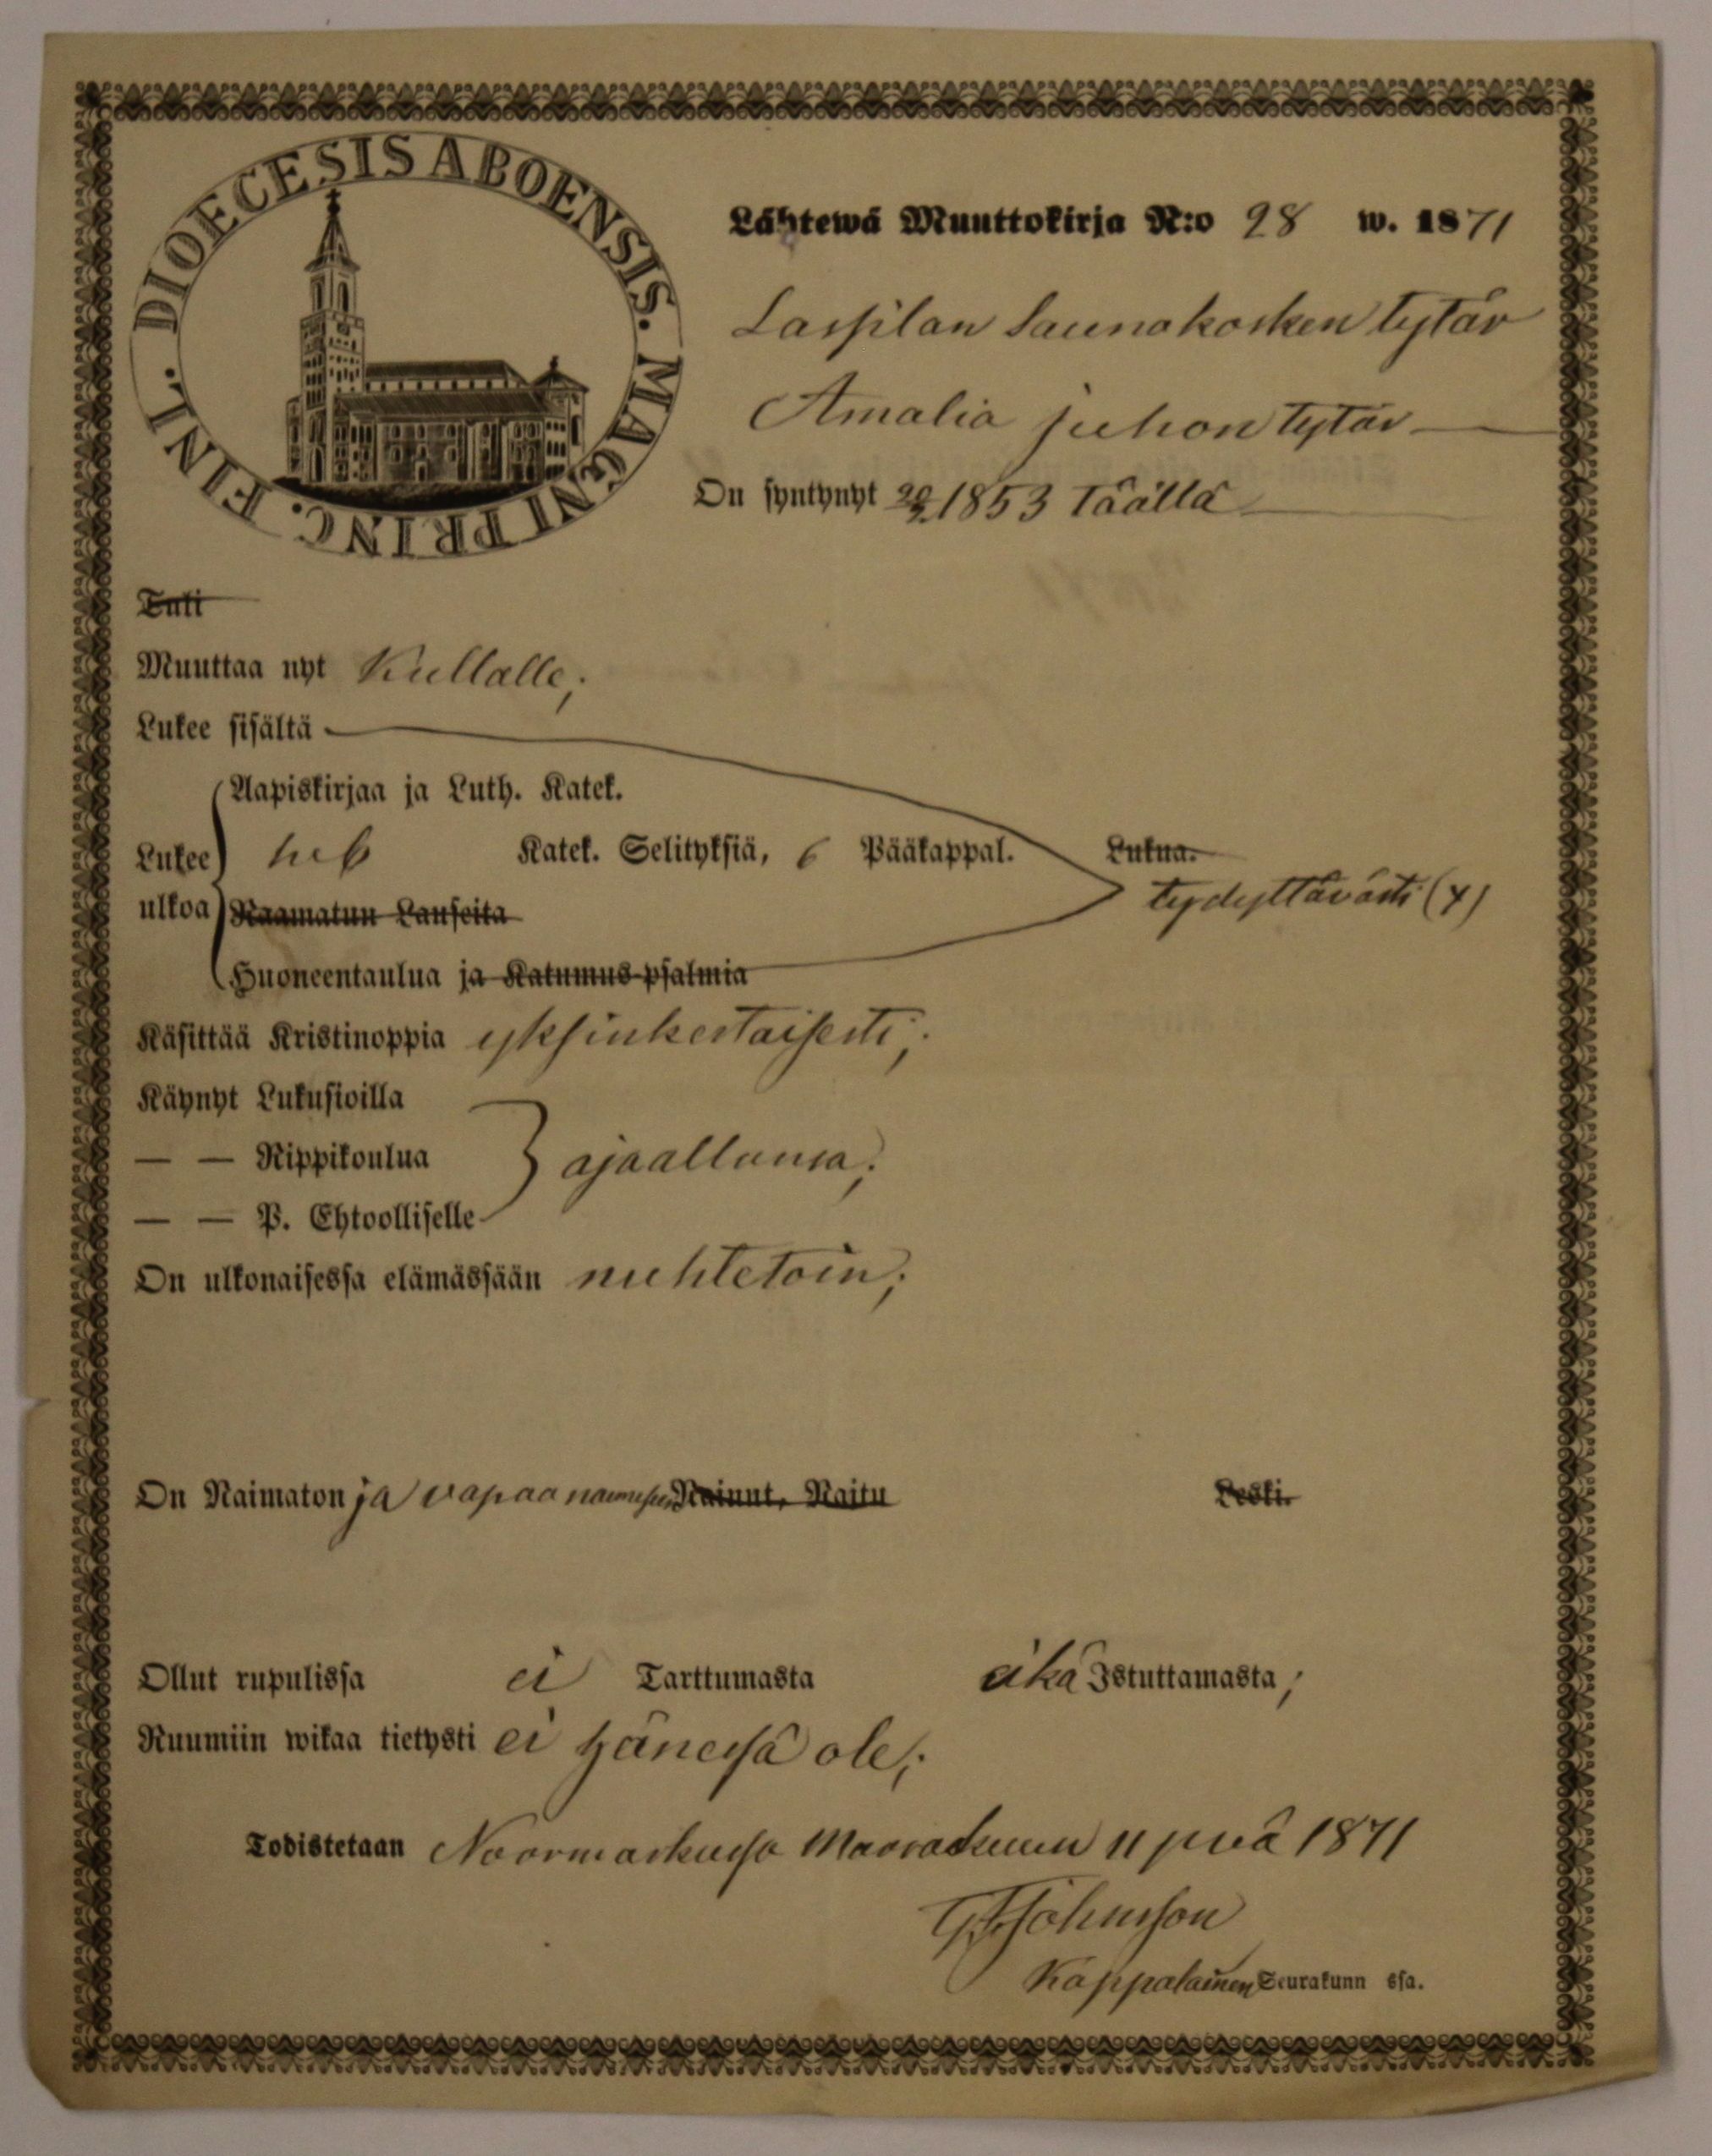 DIOECESIS ABOENSIS. MAGNI PRINC. FINL.
Lähtewä Muuttokirja N:o 28 w. 1871
Lassilan Saunakosken tytär
Amalia Juhon tytär
On syntynyt 1853 täällä
Tuli
Muuttaa nyt Kullalle;
Lukee sisältä
Aapiskirjaa ja Luth. Katek.
Lukee Katek. Selityksiä, 6 Pääkappal. Lukua.
tydyttävästi
ulkoa Raamatun Lauseita
Huoneentaulua ja Katumus-psalmia
Käsittää Kristinoppia yksinkertaisesti;
Käynyt Lukusioilla
— — Rippikoulua ajaallansa;
— — P. Ehtoolliselle
On ulkonaisessa elämässään nuhtetoin;
On Naimaton ja vapaa Nainut, Naitu Leski.
Ollut rupulissa ei Tarttumasta eikä Istuttamasta;
Ruumiin wikaa tietysti ei hänessä ole;
Todistetaan Noormarkussa Marraskuun 11 pvä 1871
Kappalainen Seurakunn ssa.